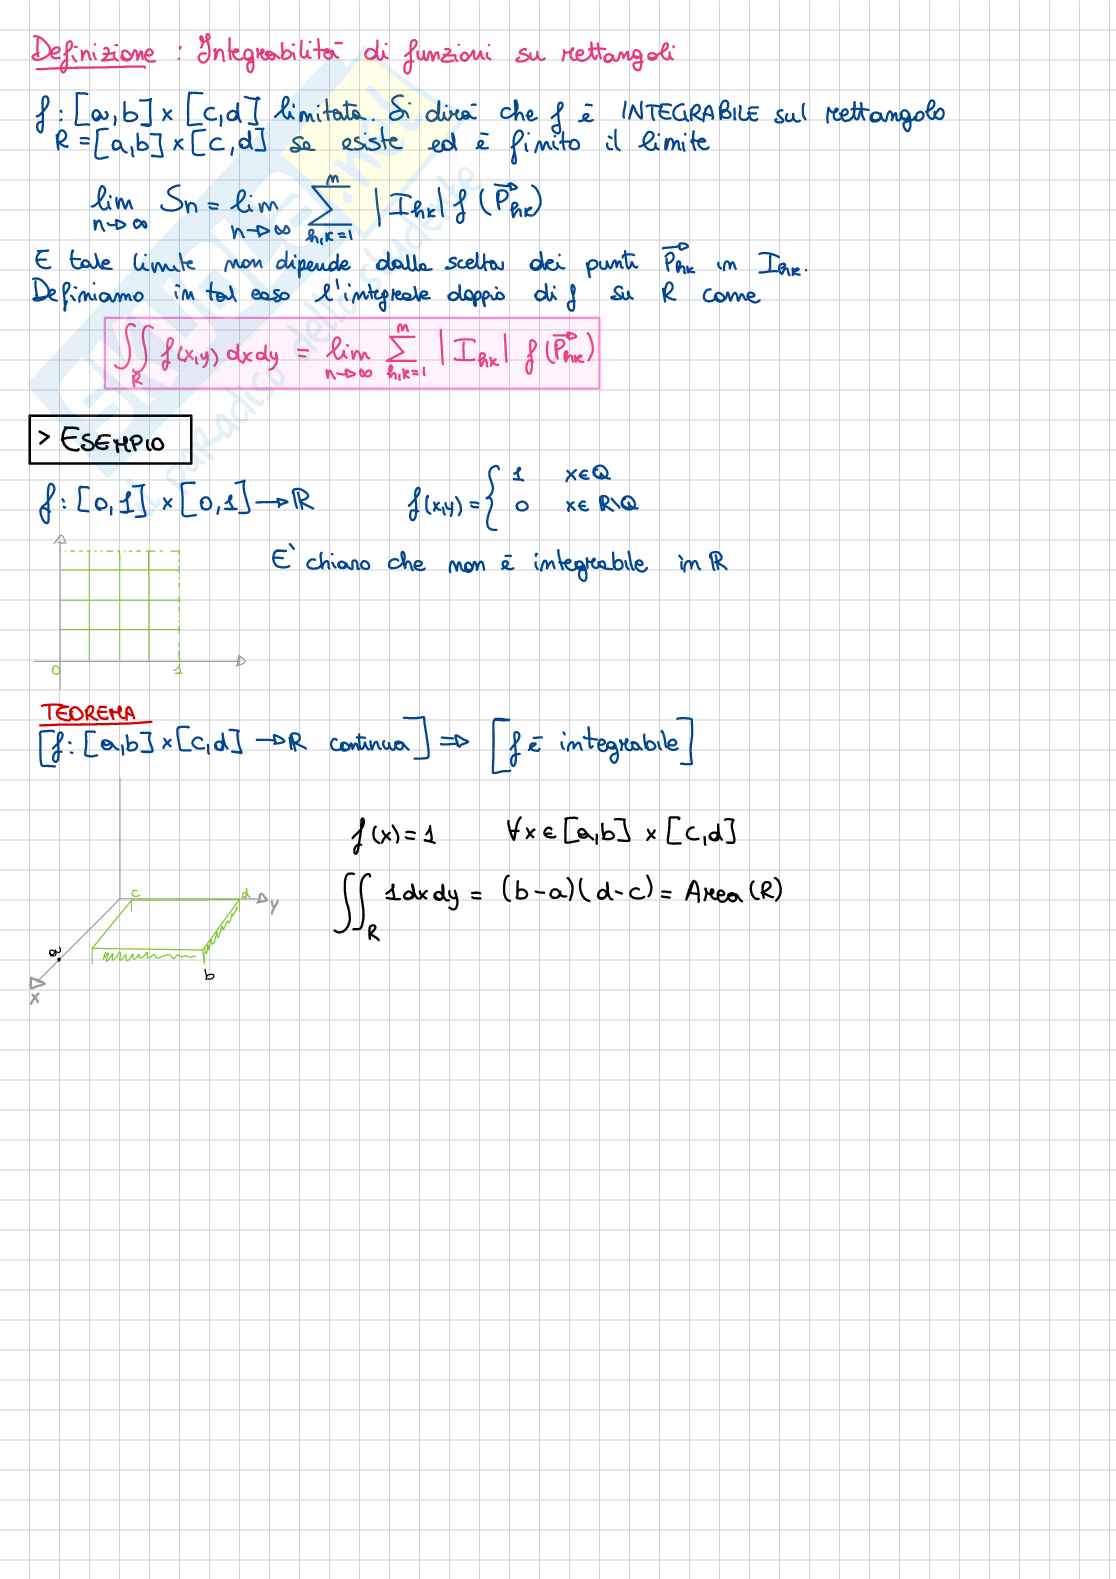 Definizione : Integrabilità di funzioni su rettangoli
f : [a,b] × [c,d] limitata. Si dirà che f è INTEGRABILE sul rettangolo
R = [a,b] × [c,d] se esiste ed è finito il limite
lim n→∞ Sn = lim n→∞ ∑ h,k=1 n |Ihk| f (Phk)
E tale limite non dipende dalla scelta dei punti Phk in Ihk.
Definiamo in tal caso l'integrale doppio di f su R come
∬R f(x,y) dxdy = lim n→∞ ∑ h,k=1 n |Ihk| f (Phk)
> ESEMPIO
f : [0,1] × [0,1] → ℝ f(x,y) = { 1 x∈ℚ
0 x∈ ℝ\ℚ
E' chiaro che non è integrabile in ℝ
0 1
TEOREMA
[f : [a,b] × [c,d] → ℝ continua] ⇒ [f è integrabile]
f(x) = 1 ∀x ∈ [a,b] × [c,d]
∬R 1 dx dy = (b-a)(d-c) = Area (R)
c d y
a
b
x